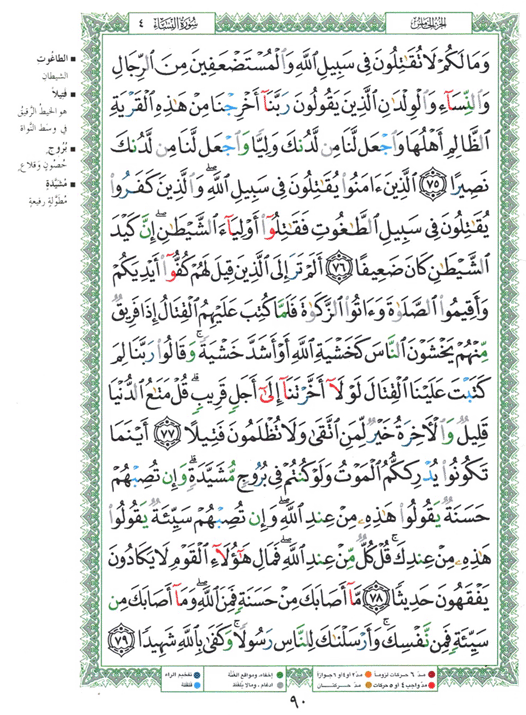 سُورَةُ النِّسَاءِ ٤
الجزء الخامس
وَمَا لَكُمْ لَا تُقَٰتِلُونَ فِى سَبِيلِ ٱللَّهِ وَٱلْمُسْتَضْعَفِينَ مِنَ ٱلرِّجَالِ
وَٱلنِّسَآءِ وَٱلْوِلْدَٰنِ ٱلَّذِينَ يَقُولُونَ رَبَّنَآ أَخْرِجْنَا مِنْ هَٰذِهِ ٱلْقَرْيَةِ
ٱلظَّالِمِ أَهْلُهَا وَٱجْعَل لَّنَا مِن لَّدُنكَ وَلِيًّا وَٱجْعَل لَّنَا مِن لَّدُنكَ
نَصِيرًا ٧٥ ٱلَّذِينَ ءَامَنُوا۟ يُقَٰتِلُونَ فِى سَبِيلِ ٱللَّهِ ۖ وَٱلَّذِينَ كَفَرُوا۟
يُقَٰتِلُونَ فِى سَبِيلِ ٱلطَّٰغُوتِ فَقَٰتِلُوٓا۟ أَوْلِيَآءَ ٱلشَّيْطَٰنِ ۖ إِنَّ كَيْدَ
ٱلشَّيْطَٰنِ كَانَ ضَعِيفًا ٧٦ أَلَمْ تَرَ إِلَى ٱلَّذِينَ قِيلَ لَهُمْ كُفُّوٓا۟ أَيْدِيَكُمْ
وَأَقِيمُوا۟ ٱلصَّلَوٰةَ وَءَاتُوا۟ ٱلزَّكَوٰةَ فَلَمَّا كُتِبَ عَلَيْهِمُ ٱلْقِتَالُ إِذَا فَرِيقٌ
مِّنْهُمْ يَخْشَوْنَ ٱلنَّاسَ كَخَشْيَةِ ٱللَّهِ أَوْ أَشَدَّ خَشْيَةً ۚ وَقَالُوا۟ رَبَّنَا لِمَ
كَتَبْتَ عَلَيْنَا ٱلْقِتَالَ لَوْلَآ أَخَّرْتَنَآ إِلَىٰٓ أَجَلٍ قَرِيبٍ ۗ قُلْ مَتَٰعُ ٱلدُّنْيَا
قَلِيلٌ وَٱلْءَاخِرَةُ خَيْرٌ لِّمَنِ ٱتَّقَىٰ وَلَا تُظْلَمُونَ فَتِيلًا ٧٧ أَيْنَمَا
تَكُونُوا۟ يُدْرِككُّمُ ٱلْمَوْتُ وَلَوْ كُنتُمْ فِى بُرُوجٍ مُّشَيَّدَةٍ ۗ وَإِن تُصِبْهُمْ
حَسَنَةٌ يَقُولُوا۟ هَٰذِهِۦ مِنْ عِندِ ٱللَّهِ ۖ وَإِن تُصِبْهُمْ سَيِّئَةٌ يَقُولُوا۟
هَٰذِهِۦ مِنْ عِندِكَ ۚ قُلْ كُلٌّ مِّنْ عِندِ ٱللَّهِ ۖ فَمَالِ هَٰٓؤُلَآءِ ٱلْقَوْمِ لَا يَكَادُونَ
يَفْقَهُونَ حَدِيثًا ٧٨ مَّآ أَصَابَكَ مِنْ حَسَنَةٍ فَمِنَ ٱللَّهِ ۖ وَمَآ أَصَابَكَ مِن
سَيِّئَةٍ فَمِن نَّفْسِكَ ۚ وَأَرْسَلْنَٰكَ لِلنَّاسِ رَسُولًا ۚ وَكَفَىٰ بِٱللَّهِ شَهِيدًا ٧٩
■ الطاغوت
الشيطان
■ فتيلاً
هو الخيط الرقيق
في وسط النواة
■ بُروج
حُصونٍ وقلاع
■ مُشيّدة
مُطوّلة رفيعة
مدّ ٦ حركات لزوماً مدّ ٢ او ٤ او ٦ جوازاً إخفاء، ومواقع الغُنّة تفخيم الراء
مدّ واجب ٤ او ٥ حركات مدّ حركتان ادغام، وما لا يُلفظ قلقلة
٩٠